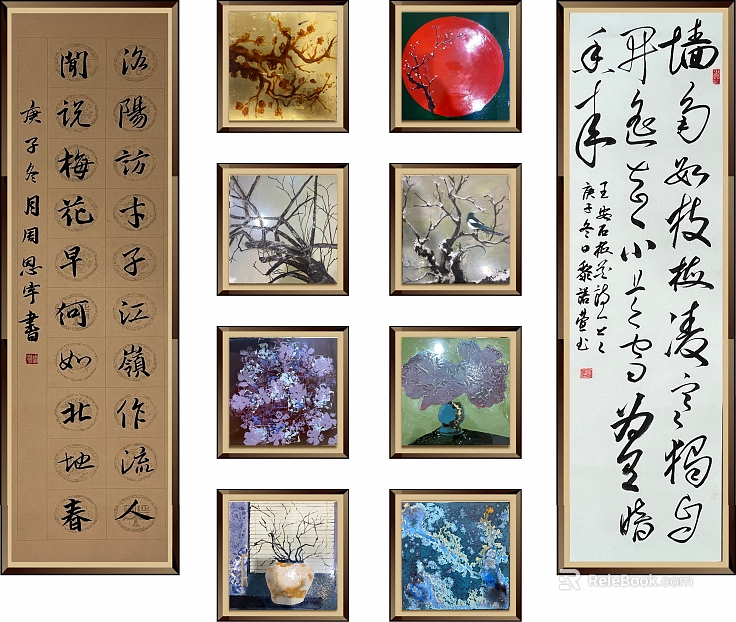 洛陽訪才子江嶺作流人
聞說梅花早何如北地春
庚子冬月周恩宇書
墙角数枝梅凌寒獨自
开遥知不是雪为有暗
香来
王安石梅花詩一首
庚子冬日黎諾萱书
ReleBook.com